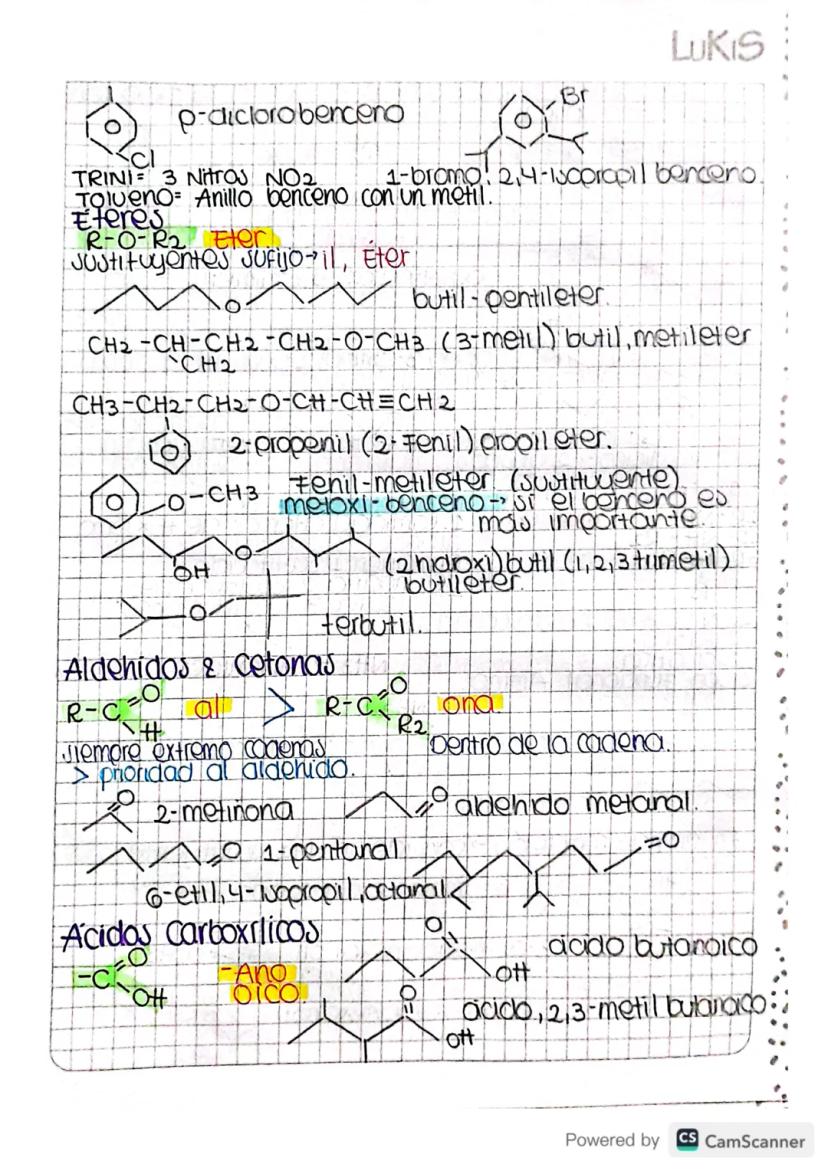 LUKIS
p-diclorobenceno
Br
Cl
TRINI= 3 Nitros NO2 1-bromo! 2,4-isopropil benceno.
Tolueno= Anillo benceno con un metil.
Éteres
R-O-R2 Eter.
sustituyentes sufijo→il, Éter
O butil-pentileter.
CH2-CH-CH2-CH2-O-CH3 (3-metil) butil, metileter
CH2
CH3-CH2-CH2-O-CH-CH≡CH2
2-propenil (2-Fenil) propil eter.
O-CH3 Fenil-metileter (sustituyente)
metoxi-benceno→ si el benceno es
más importante.
O
OH (2hidroxi)butil (1,2,3 trimetil)
butileter.
O
terbutil.
Aldehidos & Cetonas
R-C=O H al > R-C=O R2 ona
siempre extremo cadenas Dentro de la cadena.
> prioridad al aldehido.
O 2-metinona O aldehido metanal.
O 1-pentanal =O
6-etil,4-isopropil,octanal
Ácidos Carboxílicos
O ácido butanoico
OH
-C=O OH -Ano
OICO
O ácido,2,3-metil butanoico
OH
Powered by CS CamScanner